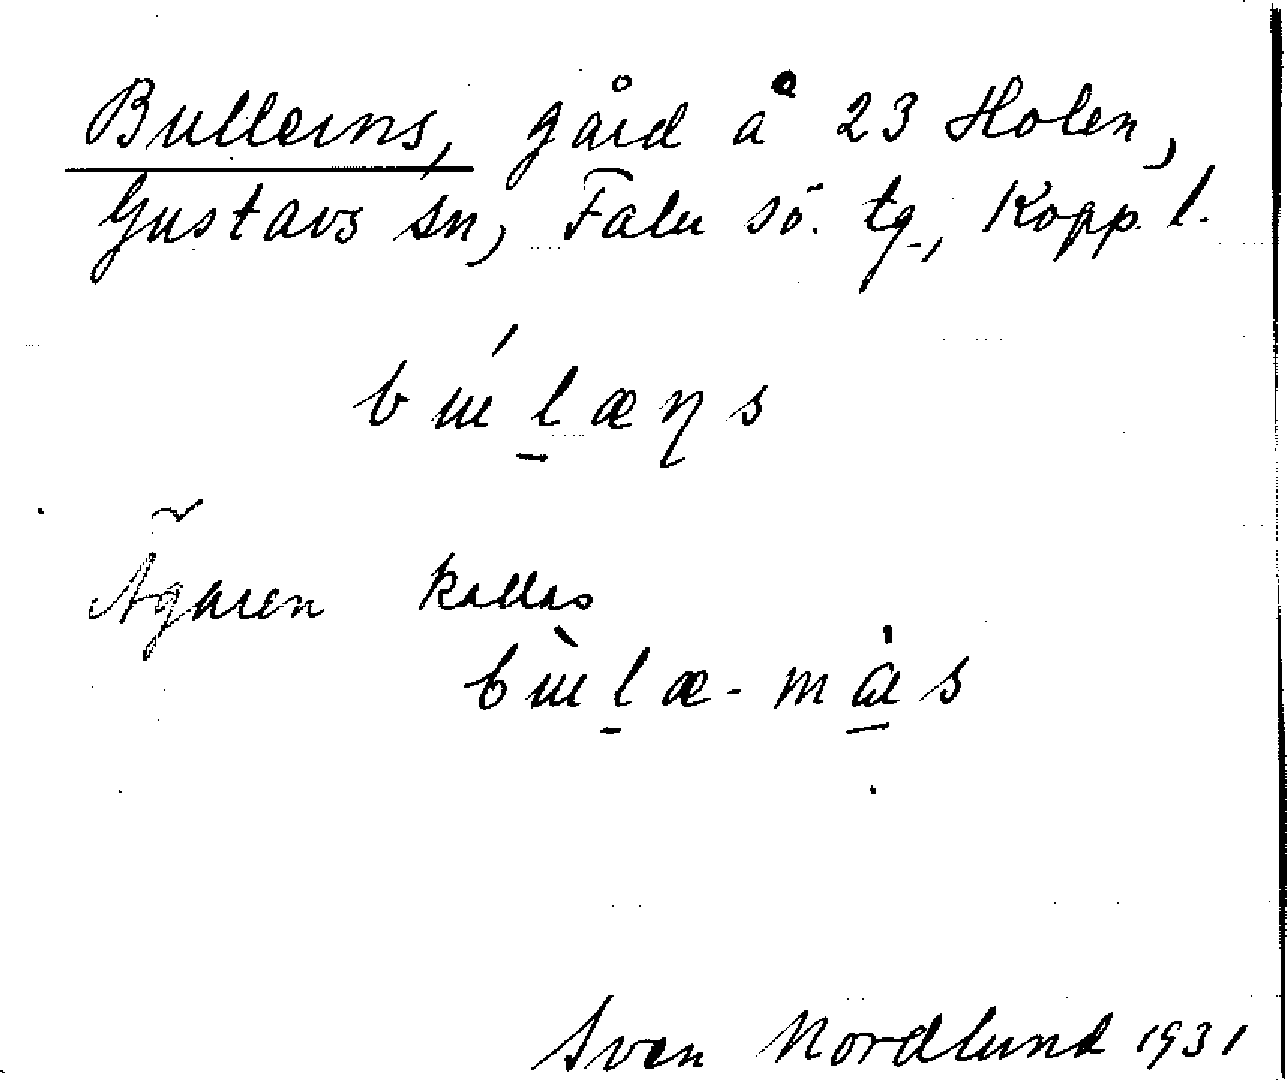 Bullerns, gård å 23 Holen,
Gustavs sn, Falu sö. tg., Kopp. l.
bɯ́læɳs
Ägaren kallas
bɯ̀læ-mås
Sven Nordlund 1931